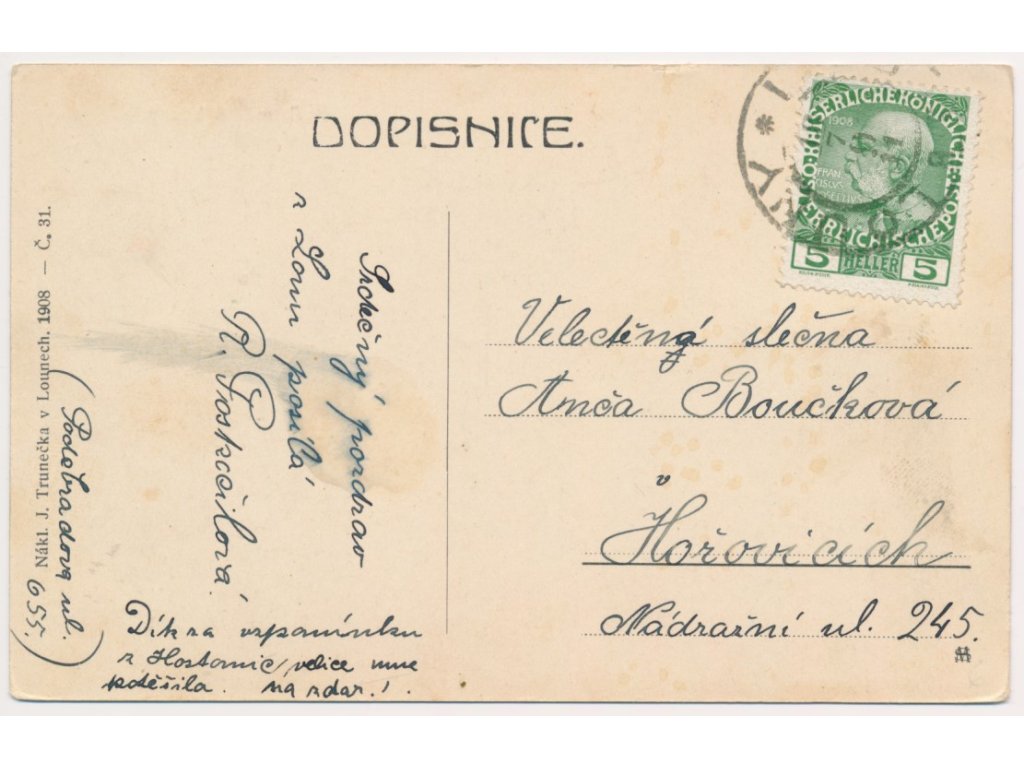 DOPISNICE.
Nákl. J. Trunečka v Lounech. 1908 — Č. 31.
Srdečný pozdrav
z Loun posílá
R. Poskočilová.
(Poděbradova ul.
655.)
Dík za vzpomínku
z Hostomic, velice mne
potěšila. Na zdar!
1908
KAISERLICHE KÖNIGLICHE
ÖSTERREICHISCHE POST
FRAN
CISCVS
5 HELLER 5
Velectěná slečna
Anča Boučková
v
Hořovicích
Nádražní ul. 245.